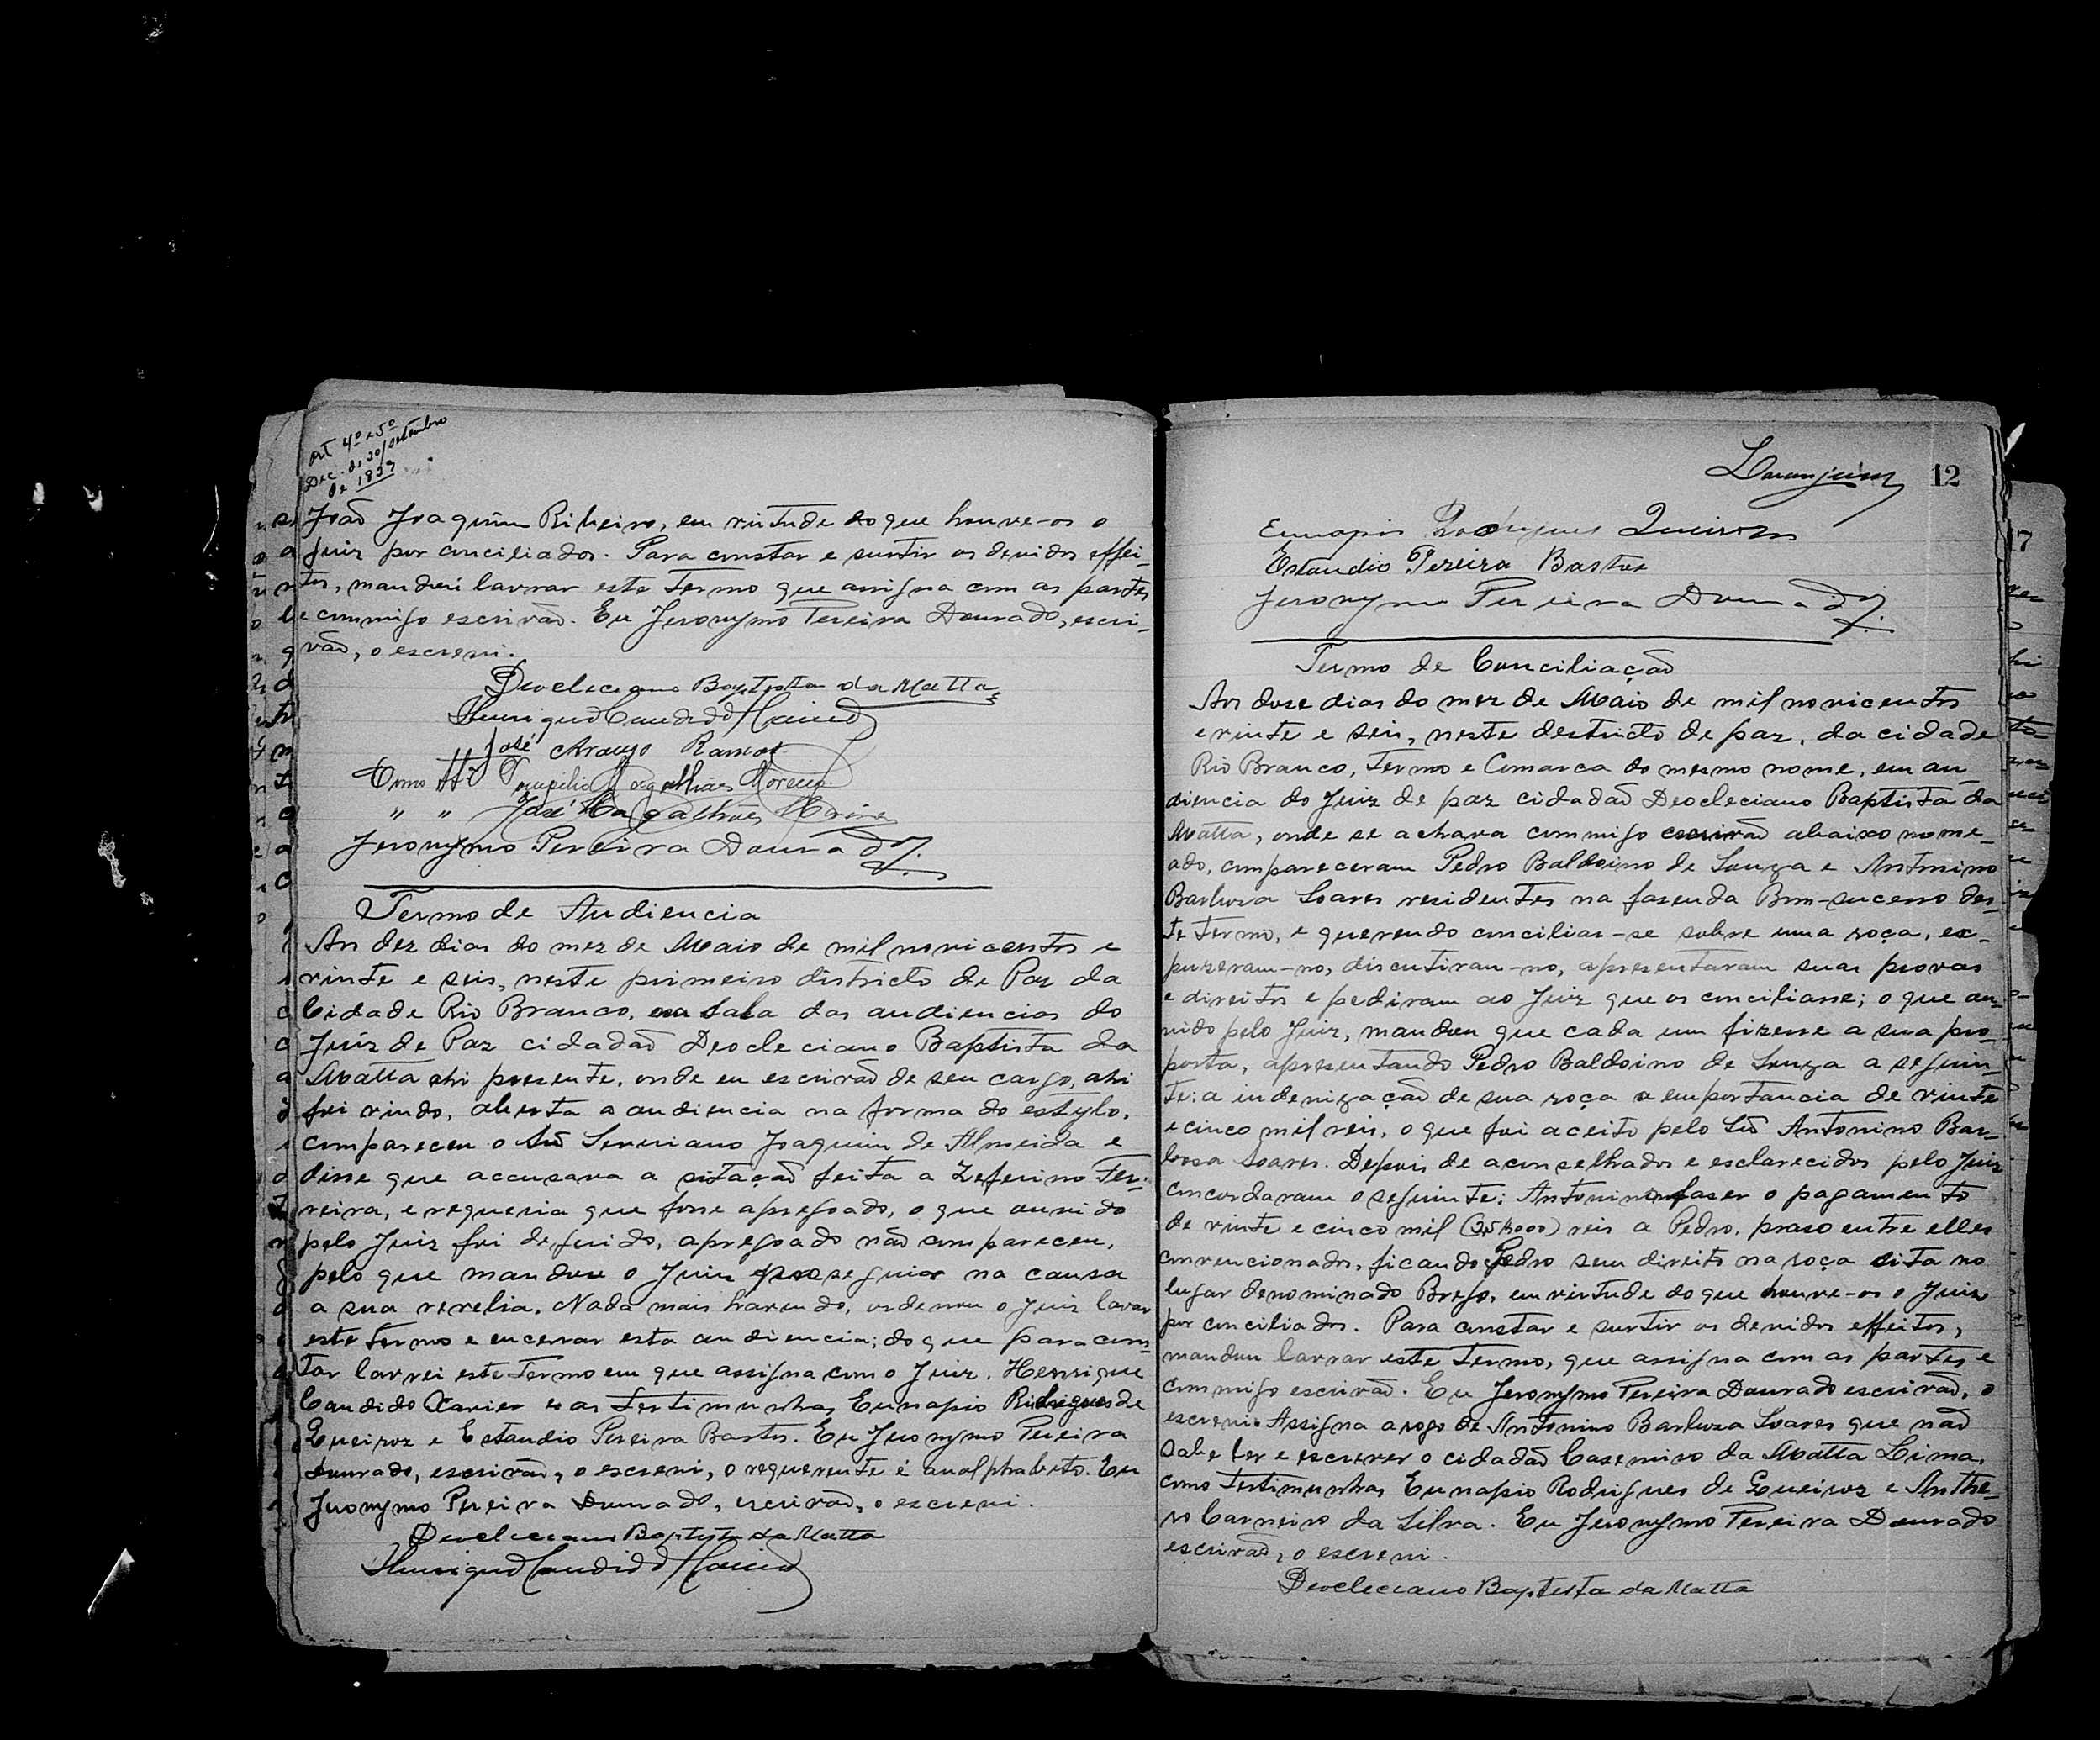 Art 4º e 5º
Dec. de 20/Setembro
de 1829
João Joaquim Ribeiro, em virtude do que houve-os o
Juiz por conciliados. Para constar e surtir os devidos effei-
tos, mandou lavrar este termo que assigna com as partes
e commigo escrivão. Eu Jeronymo Pereira Dourado, escri-
vão, o escrevi.
Deocleciano Baptista da Matta
Henrique Candido Xavier
José Araujo Ramos
Como Magalhães
" " José Magalhães
Jeronymo Pereira Dourado.
Termo de Audiencia
Aos dez dias do mez de Maio de mil novicentos e
vinte e seis, neste primeiro districto de Paz da
Cidade Rio Branco, em sala das audiencias do
Juiz de Paz cidadão Deocleciano Baptista da
Matta ahi presente, onde eu escrivão de seu cargo, ahi
foi vindo, aberta a audiencia na forma do estylo,
compareceu o Snr Severiano Joaquim de Almeida e
disse que accusava a sitação feita a Zeferino Fer-
reira, e requeria que fosse apregoado, o que ouvido
pelo Juiz foi deferido, apregoado não compareceu,
pelo que mandou o Juiz proseguir na causa
a sua revelia. Nada mais havendo, ordenou o Juiz lavar
este termo e encerar esta audiencia; do que para cons-
tar lavrei este termo em que assigna com o Juiz, Henrique
Candido Xavier e as testimunhas Eunapio Rodrigues de
Queiroz e Estaudio Pereira Bastos. Eu Jeronymo Pereira
Dourado, escrivão, o escrevi, o requerente é analphabeto. Eu
Jeronymo Pereira Dourado, escrivão, o escrevi.
Deocleciano Baptista da Matta
Henrique Candido Xavier
Laranjeira 12
Eunapio Rodrigues Queiroz
Estaudio Pereira Bastos
Jeronymo Pereira Dourado.
Termo de Conciliação
Aos dose dias do mez de Maio de mil novicentos
e vinte e seis, neste destricto de paz, da cidade
Rio Branco, Termo e Comarca do mesmo nome, em au-
diencia do Juiz de paz cidadão Deocleciano Baptista da
Matta, onde se achava commigo escrivão abaixo nome-
ado, compareceram Pedro Baldoino de Souza e Antonino
Barboza Soares residentes na fasenda Bom-sucesso des-
te termo, e querendo conciliar-se sobre uma roça, ex-
puzeram-no, discutiram-no, apresentaram suas provas
e direitos e pediram ao Juiz que os conciliasse; o que ou-
vido pelo Juiz, mandou que cada um fizesse a sua pro-
posta, apresentando Pedro Baldoino de Souza a seguin-
te: a indenização de sua roça a emportancia de vinte
e cinco mil reis, o que foi aceito pelo Snr Antonino Bar-
bosa Soares. Depois de aconselhados e esclarecidos pelo Juiz
concordaram o seguinte: Antonino faser o pagamento
de vinte e cinco mil (25$000) reis a Pedro, praso entre elles
convencionados, ficando Pedro sem direito na roça sita no
lugar denominado Brejo, em virtude do que houve-os o Juiz
por conciliados. Para constar e surtir os devidos effeitos,
mandou lavrar este termo, que assigna com as partes e
commigo escrivão. Eu Jeronymo Pereira Dourado escrivão, o
escrevi. Assigna a rogo de Antonino Barboza Soares que não
sabe ler e escrever o cidadão Casemiro da Matta Lima,
como testimunhas Eunapio Rodrigues de Queiroz e Anthe-
ro Carneiro da Silva. Eu Jeronymo Pereira Dourado
escrivão, o escrevi.
Deocleciano Baptista da Matta
17